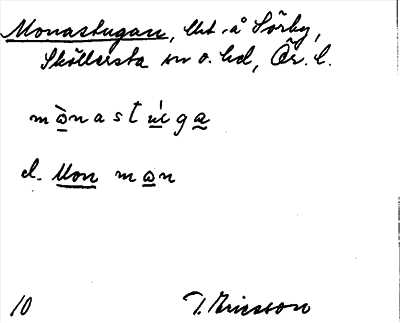 Monastugan, lht å Sörby,
Sköllersta sn o. hd, Ör. l.
mònastúga
el. Mon mon
10 T. Ericsson